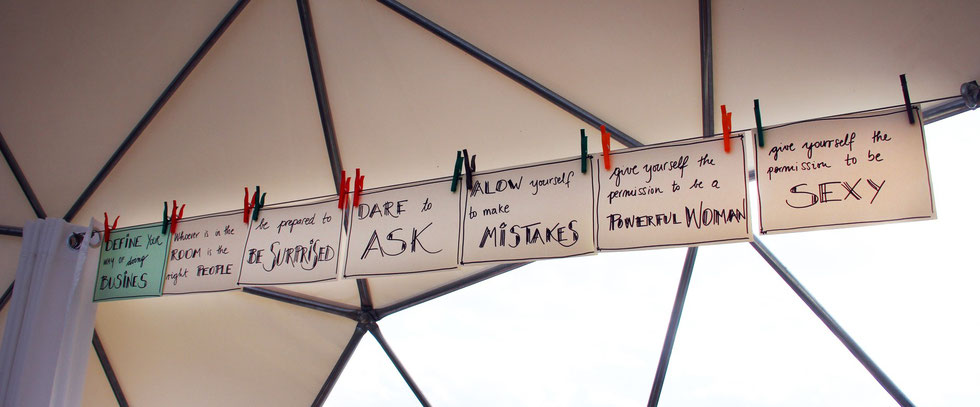 DEFINE Your
way of doing
BUSINES
Whoever is in the
ROOM is the
right PEOPLE
be prepared to
BE SURPRISED
DARE to
ASK
ALOW yourself
to make
MISTAKES
give yourself the
permission to be a
POWERFUL WOMAN
give yourself the
permission to be
SEXY